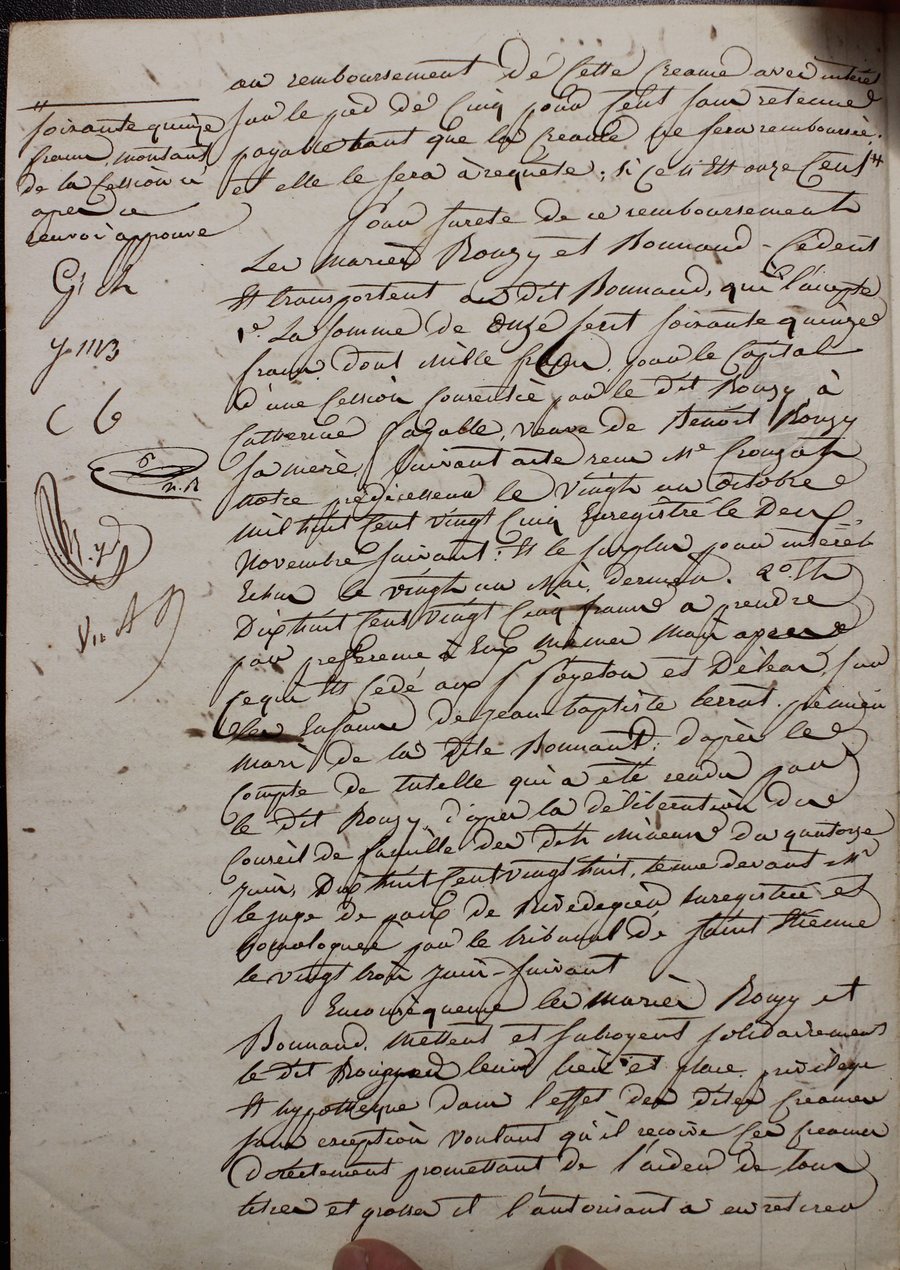 au remboursement de cette creance avec intérêt
sur le pied de cinq pour cent sans retenue
payable tant que la creance ne sera remboursée.
et elle le sera à requête, si ce n'est onze cens #
pour sureté de ce remboursement
Les mariés Rouzy et Bonnand - Cèdent
et transportent au dit Bonnand, qui l'accepte
1.° La somme de onze cent soixante quinze
francs, dont mille francs, pour le capital
d'une Cession consentie par le dit Rouzy à
Catherine veuve de Benoit Rouzy
sa mère, suivant acte reçu Me Crouzat
notre prédécesseur le vingt un octobre
mil huit cent vingt cinq enregistré le Deux
Novembre suivant. et le surplus pour intérêt
Echus le vingt un Mai, dernier. 2.° Et
Dix huit cens vingt cinq francs a prendre
par preference à Eux mêmes mais apres
ce qui est cedé aux S. Soyeton et sur
les Enfans de jean-baptiste terrat. premier
mari de la dite Bonnand, d'après le
compte de tutelle qui a été rendu par
le dit Rouzy, d'apres la deliberation du
Conseil de famille des dits mineurs du quatorze
Juin, Dix huit Cent vingt huit, tenue devant Mr
le juge de paix de Rivedegier enregistrée et
homologuée par le tribunal de Saint Etienne
le vingt trois juin - suivant
En conséquence les mariés Rouzy et
Bonnand. Mettent et subrogent solidairement
le dit en leurs lieu et place, privilège
et hypotheque dans l'effet des dites creances
sans exception voulant qu'il reçoive ces creances
directement promettant de l'aider de tous
titres et grosses et l'autorisant a en retirer
#
soixante quinze
francs, montant
de la Cession ci
après ce
renvoi approuvé